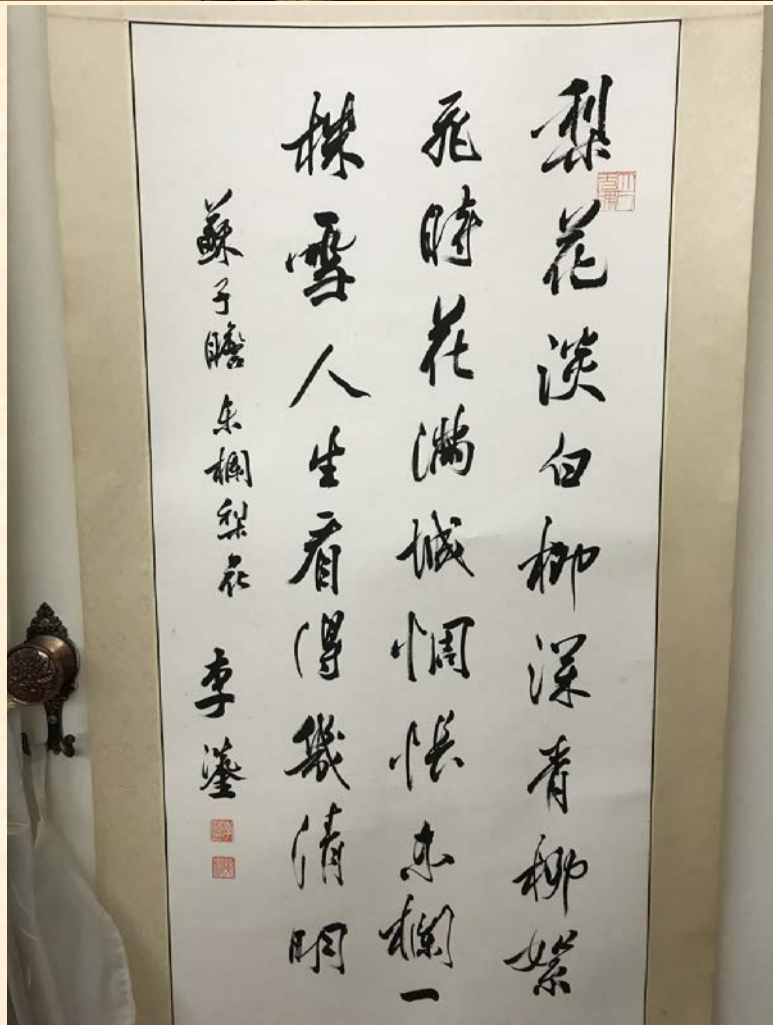 梨花淡白柳深青柳絮
飛時花滿城惆悵東欄一
株雪人生看得幾清明
蘇子瞻東欄梨花 李鎏